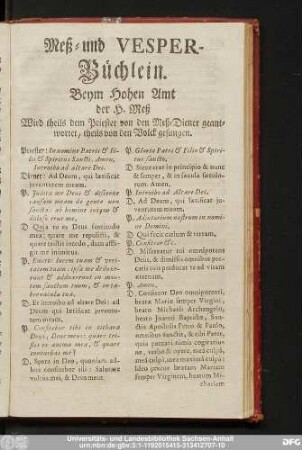 Meß- und VESPER-
Büchlein.
Beym Hohen Amt
der H. Meß
Wird theils dem Priester von den Meß-Diener geant-
wortet, theils von den Volck gesungen.
Priester: In nomine Patris & Fi-
lii & Spiritus Sancti. Amen.
Introibo ad altare Dei.
Diener: Ad Deum, qui lætificat
juventutem meam.
P. Judica me Deus & discerne
causam meam de gente non
sancta: ab homine iniquo &
doloso erue me.
D. Quia tu es Deus fortitudo
mea: quare me repulisti, &
quare tristis incedo, dum affli-
git me inimicus.
P. Emitte lucem tuam & veri-
tatem tuam: ipsa me deduxe-
runt & adduxerunt in mon-
tem sanctum tuum, & in ta-
bernacula tua.
D. Et introibo ad altare Dei: ad
Deum qui lætificat juventu-
tem meam.
P. Confitebor tibi in cithara
Deus, Deus meus: quare tri-
stis es anima mea, & quare
conturbas me?
D. Spera in Deo, quoniam ad-
huc confitebor illi: Salutare
vultus mei, & Deus meus.
P. Gloria Patri & Filio & Spiri-
tui sancto.
D. Sicut erat in principio & nunc
& semper, & in secula seculo-
rum. Amen.
P. Introibo ad Altare Dei.
D. Ad Deum, qui lætificat ju-
ventutem meam.
P. Adjutorium nostrum in nomi-
ne Domini.
D. Qui fecit cœlum & terram.
P. Confiteor &c.
D. Misereatur tui omnipotens
Deus, & dimissis omnibus pec-
catis tuis perducat te ad vitam
æternam.
P. Amen.
D. Confiteor Deo omnipotenti,
beatæ Mariæ semper Virgini,
beato Michaeli Archangelo,
beato Joanni Baptistæ, San-
ctis Apostolis Petro & Paulo,
omnibus sanctis, & tibi Pater,
quia peccavi nimis cogitatio-
ne, verbo & opere, mea culpa,
mea culpa, mea maxima culpa:
Ideo precor beatam Mariam
semper Virginem, beatum Mi-
chaelem
Universitäts- und Landesbibliothek Sachsen-Anhalt
urn:nbn:de:gbv:3:1-1192015415-313412707-10